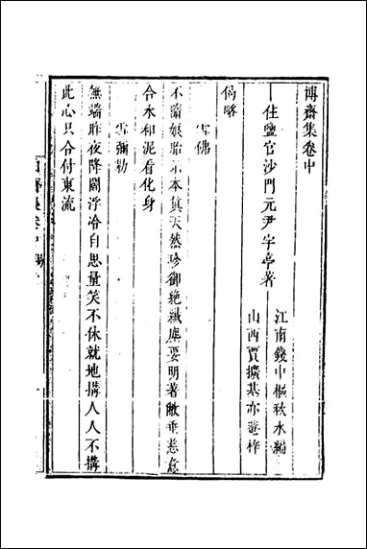 博齋集卷中
住鹽官沙門元尹字亭著
江南錢中樞秋水編
山西賈擴基亦菴梓
偈
雪佛
不噇娘胎示本真天然珍御絕纖塵要明著敝垂慈
合水和泥看化身
雪彌勒
無端昨夜降閻浮冷自思量笑不休就地搆人人不搆
此心只合付東流